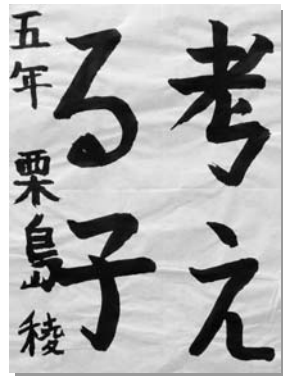 考え
る子
五年 栗島 稜